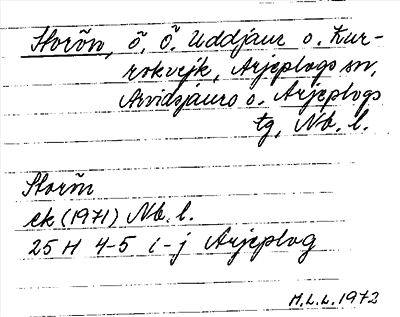 Storön, ö. Ö. Uddjaur o. Kur-
rokvejk, Arjeplogs sn,
Arvidsjaurs o. Arjeplogs
tg, Nb. l.
Storön
ek (1971) Nb. l.
25 H 4-5 i-j Arjeplog
M.L.L. 1972